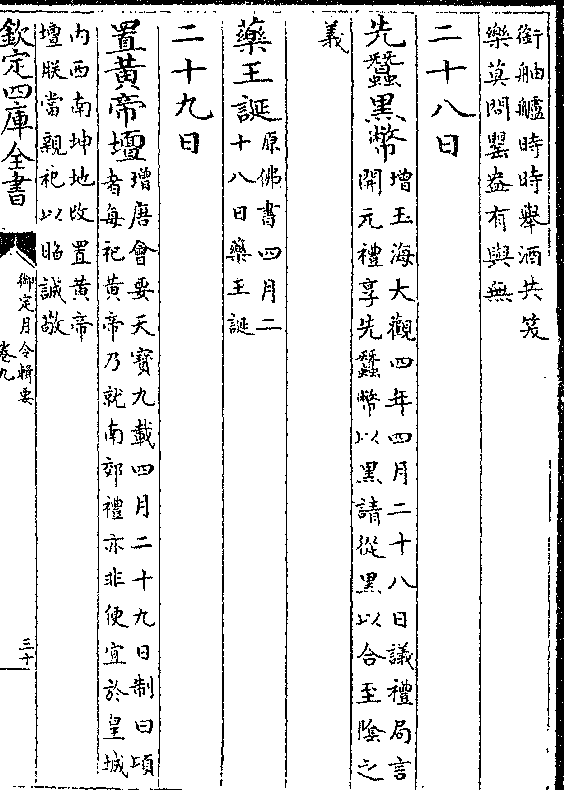 銜舳艫時時舉酒共笑
樂莫問罌盎有與無
二十八日
先蠶黑幣
增玉海大觀四年四月二十八日議禮局言
開元禮享先蠶幣以黑請從黑以合至陰之
義
藥王誕
原佛書四月二
十八日藥王誕
二十九日
置黃帝壇
增唐會要天寶九載四月二十九日制曰頃
者每祀黃帝乃就南郊禮亦非便宜於皇城
內西南坤地改置黃帝
壇朕當親祀以昭誠敬
欽定四庫全書
御定月令輯要
卷九
三十